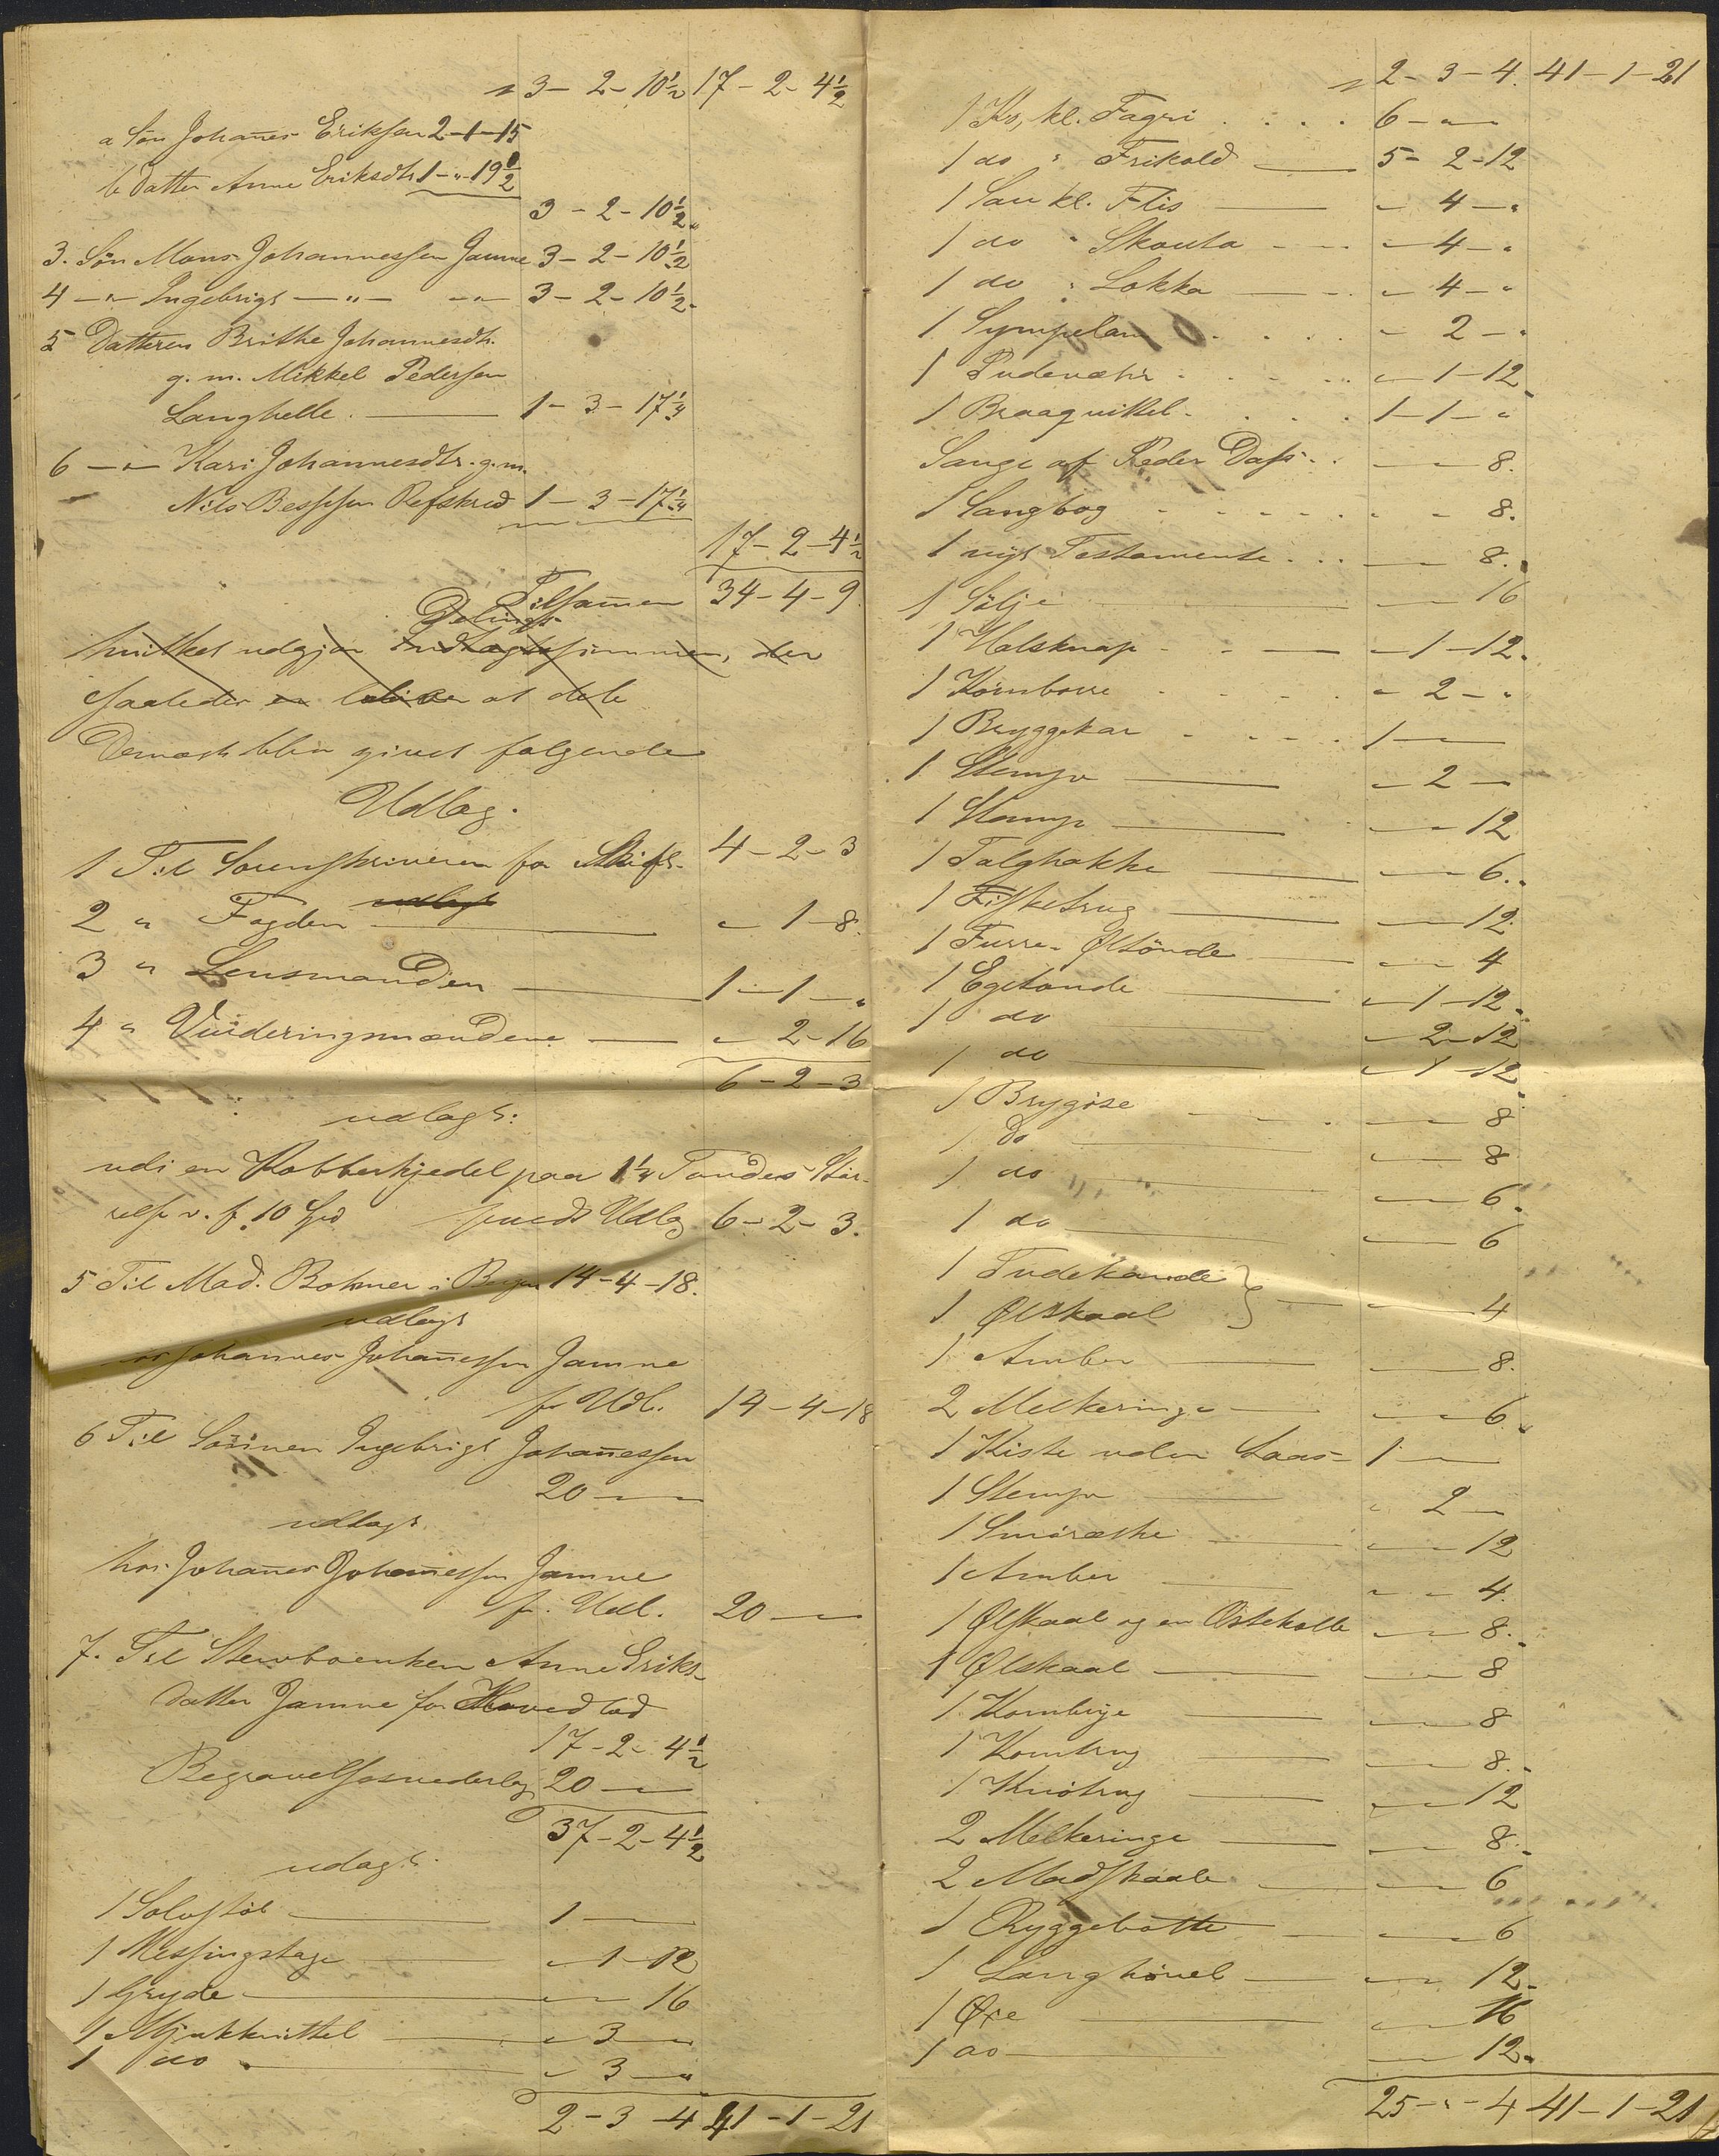 3 - 2 - 10½ 17 - 2 - 4½
a Søn Johañes Eriksen 2-1-15
b Datter Anne Eriksdtr 1-"-19½
3 - 2 - 10½
3. Søn Mons Johannessen Jamne 3 - 2 - 10½
4 -"- Ingebrigt -"- -"- 3 - 2 - 10½
5 Datteren Brithe Johannesdtr.
g. m. Mikkel Pedersen
Langhelle. 1 - 3 - 17¼
6 -"- Kari Johannesdtr. g.m.
Nils Bessesen Refskred 1 - 3 - 17¼
17 - 2 - 4½
Tilsam̄en 34 - 4 - 9.
Delings
hvilket udgjør Indtægtssummen, der
saaledes er bliver at dele
Dernæst blev givet følgende
Udlæg.
1 Til Sorenskriveren for Skift. 4 - 2 - 3
udlagt
2 " Fogden " - 1 - 8.
3 " Lensmanden 1 - 1 - "
4 " Vurderingsmændene " 2 - 16
6 - 2 - 3
udlagt:
udi en Kobberkjedel paa 1¼ Tøndes Stør-
relse v. f. 10 Spd Udlæg 6 - 2 - 3.
5 Til Mad. Bohmer i Bergen 14 - 4 - 18.
udlagt
hos Johannes Johañessen Jamne
f. Udl. 14 - 4 - 18
6 Til Sönnen Ingebrigt Johañessen
20 - "
udlagt
hos Johañes Johañessen Jamne
f. Udl. 20 - "
7. Til Stervboenken Anne Eriks-
datter Jamne for Hovedlod
17 - 2 - 4½
Begravelsesvederlag 20 - "
37 - 2 - 4½
udlagt.
1 Sølvstøb 1 -
1 Messingstage " - 1 - 12
1 Gryde " - " 16
1 Mjukkvittel " 3 - "
1 do " 3 - "
2 - 3 - 4 41 - 1 - 21
2 - 3 - 4. 41 - 1 - 21
1 Ko, kl. Fagri 6 - "
1 do " Frikold 5 - 2 - 12
1 Sau kl. Flis " 4 - "
1 do " Skouta " 4 - "
1 do " Lokka " 4 - "
1 " 2 - "
1 Pudevahr " 1 - 12
1 Braaqvittel 1 - 1 - "
Sange af Peder Dass " - 8.
1 Sangbog " " 8.
1 nyt Testamente " - 8.
1 Sölje " - 16
1 Halsknap " 1 - 12.
1 Kornborre " 2 - "
1 Bryggekar 1 - "
1 Stempe " 2 -
1 Stamp " - 12
1 Talghakke " - 6.
1 Fisketrug " - 12.
1 Furre- Øltönde " - 4
1 Egetönde " 1 - 12.
1 do " 2 - 12
1 do " 1 - 12
1 Brygöse " - 8
1 do " - 8
1 do " - 6.
1 do " - 6
1 Tudekande }
1 Ølskaal } " - 4
1 Amber " - 8.
2 Melkeringe " - 6.
1 Kiste uden Laas 1 - "
1 Stempe " 2 -
1 Smöræske " - 12
1 Amber " - 4.
1 Ølskaal og en Ostekolle " - 8.
1 Ølskaal " - 8
1 Kornbyje " - 8
1 Korntrug " - 8.
1 Knötrug " - 12
2 Melkeringe " - 8.
2 Madskaale " - 6
1 Ryggebötte " - 6
1 Langhövel " - 12.
1 Øxe " - 16
1 do " - 12.
25 - " - 4 41 - 1 - 21